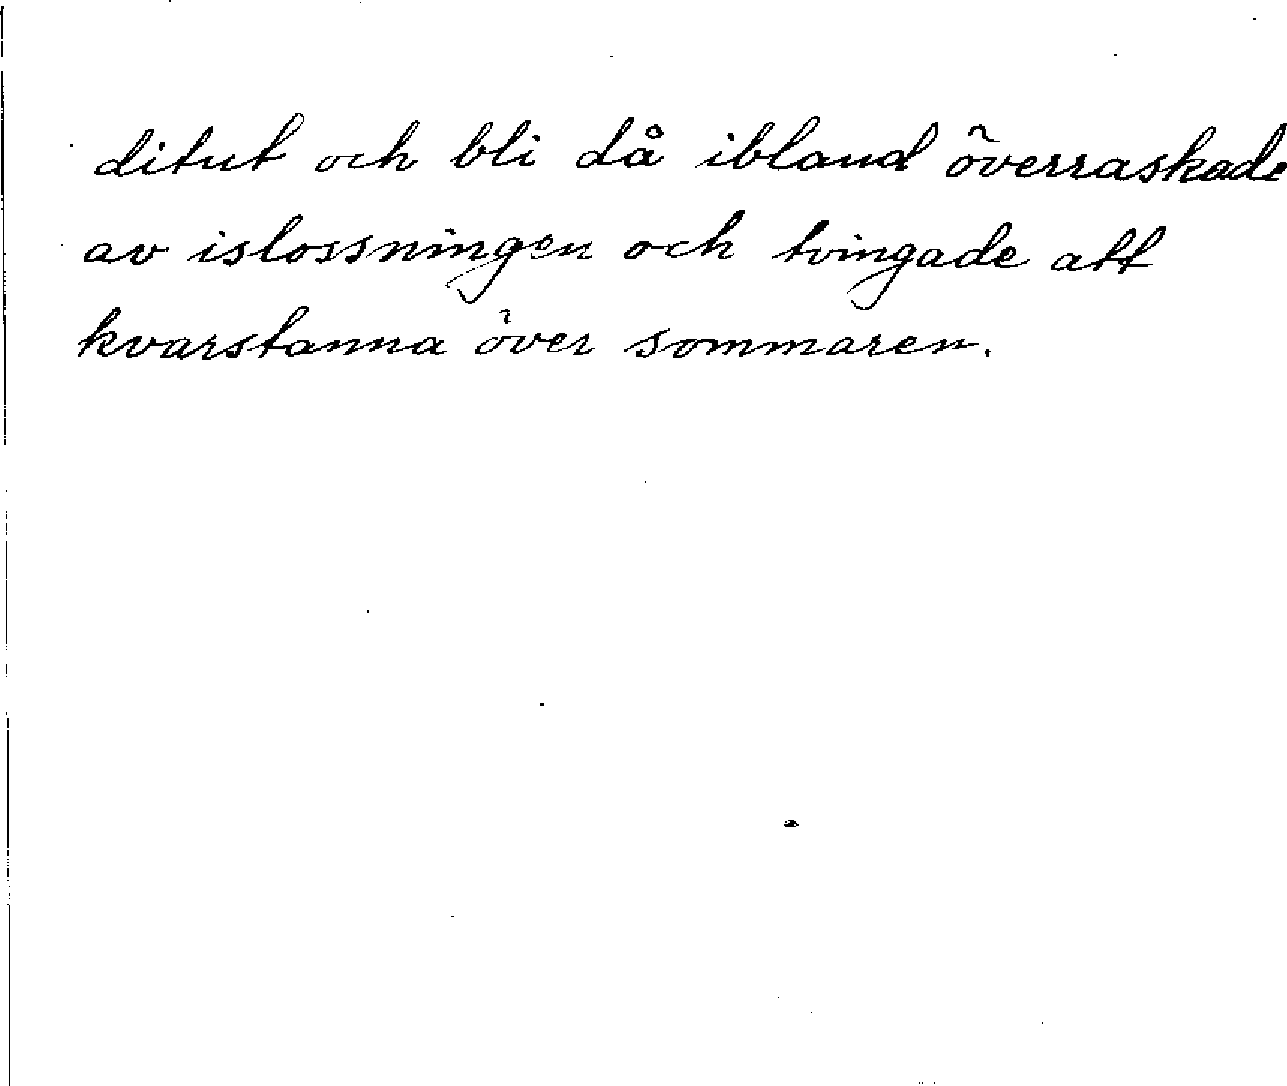 ditut och bli då ibland överraskade
av islossningen och tvingade att
kvarstanna över sommaren.